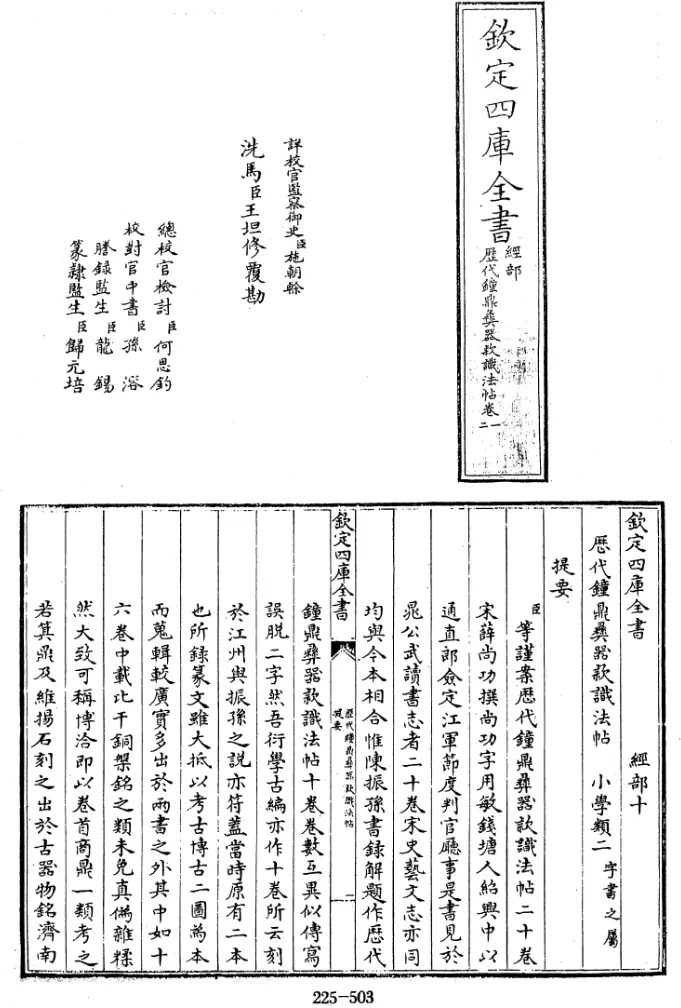 欽定四庫全書
經部
歷代鐘鼎彝器款識法帖卷一二
詳校官監察御史臣施朝幹
洗馬臣王坦修覆勘
總校官檢討臣何思鈞
校對官中書臣孫溶
謄錄監生臣龍錫
篆隸監生臣歸元培
欽定四庫全書 經部十
歷代鐘鼎彝器款識法帖 小學類二字書之屬
提要
臣等謹案歷代鐘鼎彝器款識法帖二十卷
宋薛尚功撰尚功字用敏錢塘人紹興中以
通直郎僉定江軍節度判官廳事是書見於
晁公武讀書志者二十卷宋史藝文志亦同
均與今本相合惟陳振孫書錄解題作歷代
欽定四庫全書
歷代鐘鼎彝器款識法帖
提要
二
鐘鼎彝器款識法帖十卷卷數互異似傳寫
誤脫二字然吾衍學古編亦作十卷所云刻
於江州與振孫之說亦符蓋當時原有二本
也所錄篆文雖大抵以考古博古二圖為本
而蒐輯較廣實多出於兩書之外其中如十
六卷中載比干銅槃銘之類未免真偽雜糅
然大致可稱博洽即以卷首商鼎一類考之
若箕鼎及維揚石刻之出於古器物銘濟南
225-503